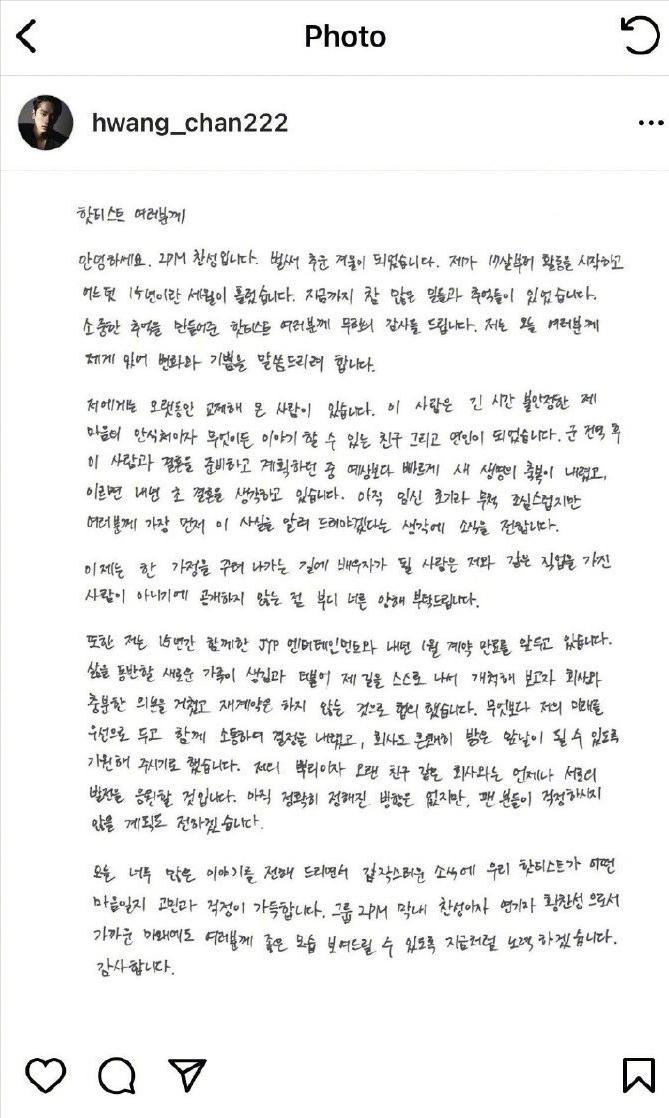 Photo
hwang_chan222
핫티스트 여러분께
안녕하세요. 2PM 찬성입니다. 벌써 추운 겨울이 되었습니다. 제가 17살부터 활동을 시작하고
어느덧 15년이란 세월이 흘렀습니다. 지금까지 참 많은 일들과 추억들이 있었습니다.
소중한 추억을 만들어준 핫티스트 여러분께 무한의 감사를 드립니다. 저는 오늘 여러분께
제게 있어 변화와 기쁨을 말씀드리려 합니다.
저에게는 오랫동안 교제해 온 사람이 있습니다. 이 사람은 긴 시간 불안정한 제
마음의 안식처이자 무엇이든 이야기 할 수 있는 친구 그리고 연인이 되었습니다. 군 전역 후
이 사람과 결혼을 준비하고 계획하던 중 예상보다 빠르게 새 생명의 축복이 내렸고,
이르면 내년 초 결혼을 생각하고 있습니다. 아직 임신 초기라 무척 조심스럽지만
여러분께 가장 먼저 이 사실을 알려 드려야겠다는 생각에 소식을 전합니다.
이제는 한 가정을 꾸려 나가는 길에 배우자가 될 사람은 저와 같은 직업을 가진
사람이 아니기에 공개하지 않는 점 부디 너른 양해 부탁드립니다.
또한 저는 15년간 함께한 JYP 엔터테인먼트와 내년 1월 계약 만료를 앞두고 있습니다.
삶을 동반할 새로운 가족이 생김과 더불어 제 길을 스스로 나서 개척해 보고자 회사와
충분한 의논을 거쳤고 재계약은 하지 않는 것으로 협의 했습니다. 무엇보다 저의 미래를
우선으로 두고 함께 소통하여 결정을 내렸고, 회사도 은연히 밝은 앞날이 될 수 있도록
기원해 주시기로 했습니다. 저의 뿌리이자 오랜 친구 같은 회사와는 언제나 서로의
발전을 응원할 것입니다. 아직 정확히 정해진 방향은 없지만, 팬 분들이 걱정하시지
않을 계획도 전하겠습니다.
오늘 너무 많은 이야기를 전해 드리면서 갑작스러운 소식에 우리 핫티스트가 어떤
마음일지 고민과 걱정이 가득합니다. 그룹 2PM 막내 찬성이자 연기자 황찬성 으로서
가까운 미래에도 여러분께 좋은 모습 보여드릴 수 있도록 지금처럼 노력 하겠습니다.
감사합니다.